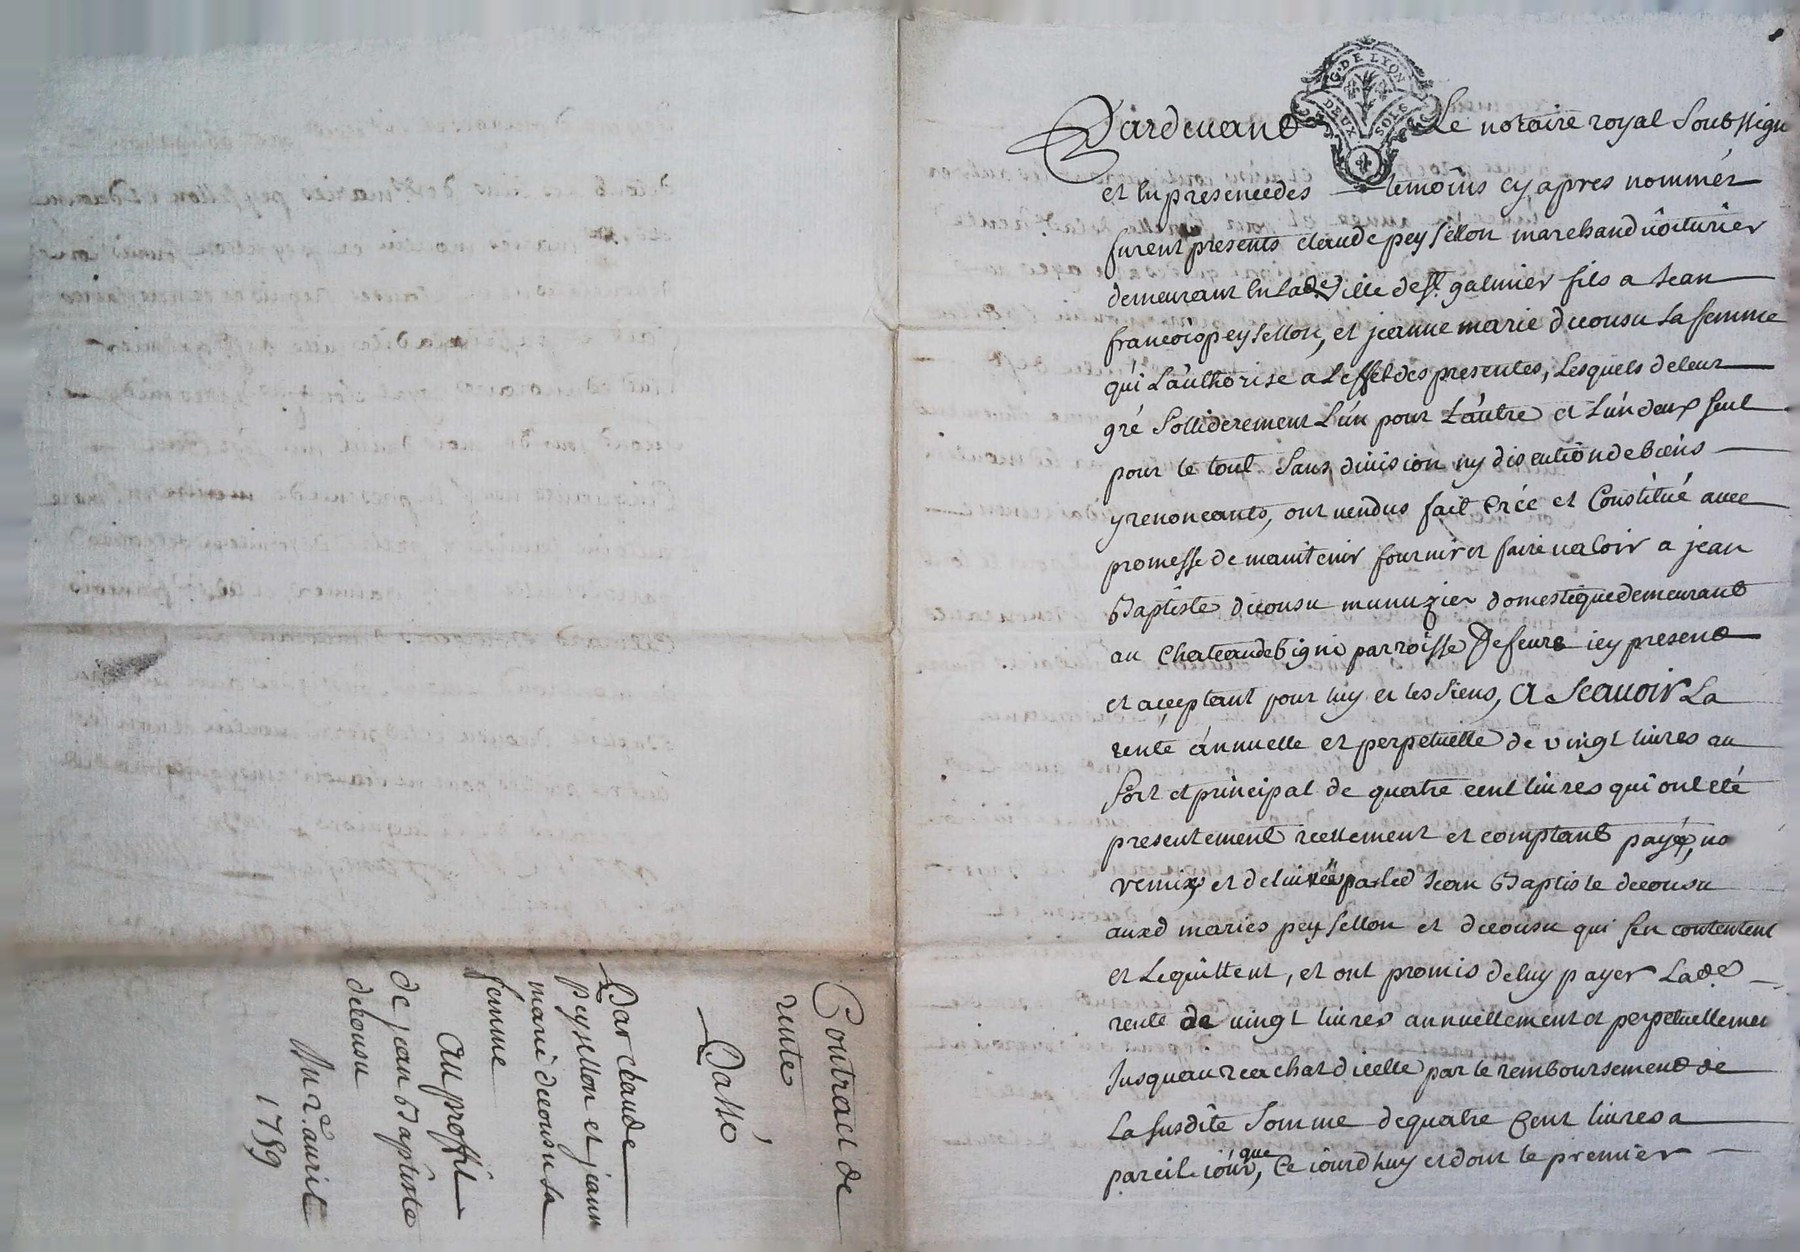 G. DE LYON
DEUX SOLS
Pardevant Le notaire royal Soubsigné
et En presence des temoins cy apres nommér
furent presents claude peyssellon marchand voiturier
demeurant En Lade. ville de St. galmier fils a Jean
francois peyssellon, et jeanne marie decousu La femme
qui L'authorise a L'effet des presentes, Lesquels de leur
gré Sollidérement L'ún pour L'áutre et L'ún deux seul
pour le tout Sans division ny discution de biens
y renonçants, ont vendus fait Créé et Constitué avec
promesse de maintenir fournir et faire valoir a jean
Baptiste decousu munuzier domestique demeurant
au Chateau de bigni parroisse De feurs icy present
et acceptant pour luy et les siens, A Scavoir La
rente ánnuelle et perpetuelle de vingt livres au
Sort et principal de quatre cent livres qui ont été
presentement reellement et comptant payé, no
remis et delivréé par led Jean Baptiste decousu
auxd mariés peyssellon et decousu qui s'en contentent
et Lequittent, et ont promis de luy payer Lade.
rente de vingt livres annuellement et perpetuellemet
Jusqueau reachat dicelle par le remboursement de
La susdite Somme de quatre Cent livres a
pareil jour, que Ce jourdhuy et dont le premier
Contract de
rente
Passé
Par claude
peyssellon et jeann
marie decousu sa
femme
Au proffit
de jean Baptiste
decousu
Du 2e. avril
1759